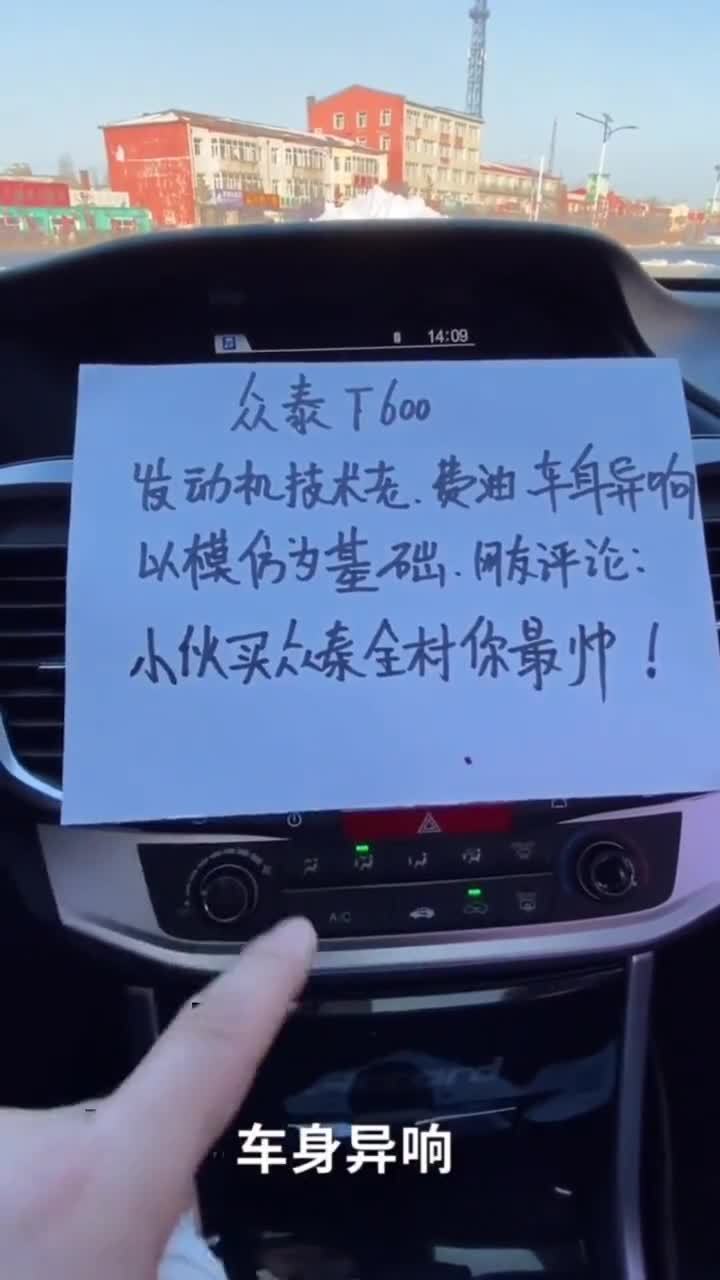 14:09
众泰T600
发动机技术老.费油 车身异响
以模仿为基础.网友评论:
小伙买众泰全村你最帅!
A/C
车身异响